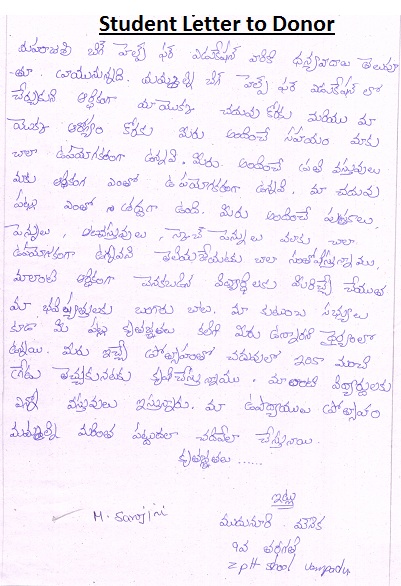 Student Letter to Donor
బిగ్ హెల్ప్ ఫర్ ఎడుకేషన్ వారికి ధన్యవాదాలు తెలుపు
తూ వ్రాయునున్నది. మమ్మల్ని బిగ్ హెల్ప్ ఫర్ ఎడుకేషన్ లో
చేర్చుకుని ఆర్థికంగా మా యొక్క చదువు కొరకు మరియు మా
యొక్క ఆరోగ్యం కొరకు మీరు అందించే సహాయం మాకు
చాలా ఉపయోగకరంగా ఉన్నవి. మీరు అందించే ప్రతి వస్తువులు
మాకు ఎంతో ఉపయోగకరంగా ఉన్నవి. మా చదువు
పట్ల ఎంతో శ్రద్ధగా ఉంది. మీరు అందించే పుస్తకాలు
పెన్నులు, పెన్నులు మాకు చాలా
ఉపయోగకరంగా ఉన్నవని తెలియజేయుటకు చాలా
మాలాంటి ఆర్థికంగా వెనకబడిన విద్యార్థులకు మీరిచ్చే చేయూత
మా భవిష్యత్తులకు బంగారు బాట. మా కుటుంబ సభ్యులు
కూడా మీ పట్ల కృతజ్ఞతలు కలిగి మీరు ఉన్నారనే ధైర్యంలో
ఉన్నాయి. మీరు ఇచ్చే ప్రోత్సాహంతో చదువులో ఇంకా మంచి
గ్రేడు తెచ్చుకునుటకు కృషిచేస్తున్నాము. మాలాంటి విద్యార్థులకు
ఎన్నో వస్తువులు ఇస్తున్నారు. మా ఉపాధ్యాయులు ప్రోత్సాహం
మమ్మల్ని మరింత పట్టుదలా చదివేలా చేస్తున్నాయి.
కృతజ్ఞతలు ......
ఇట్లు
M. Sarojini
మౌనిక
9వ తరగతి
Z P H School